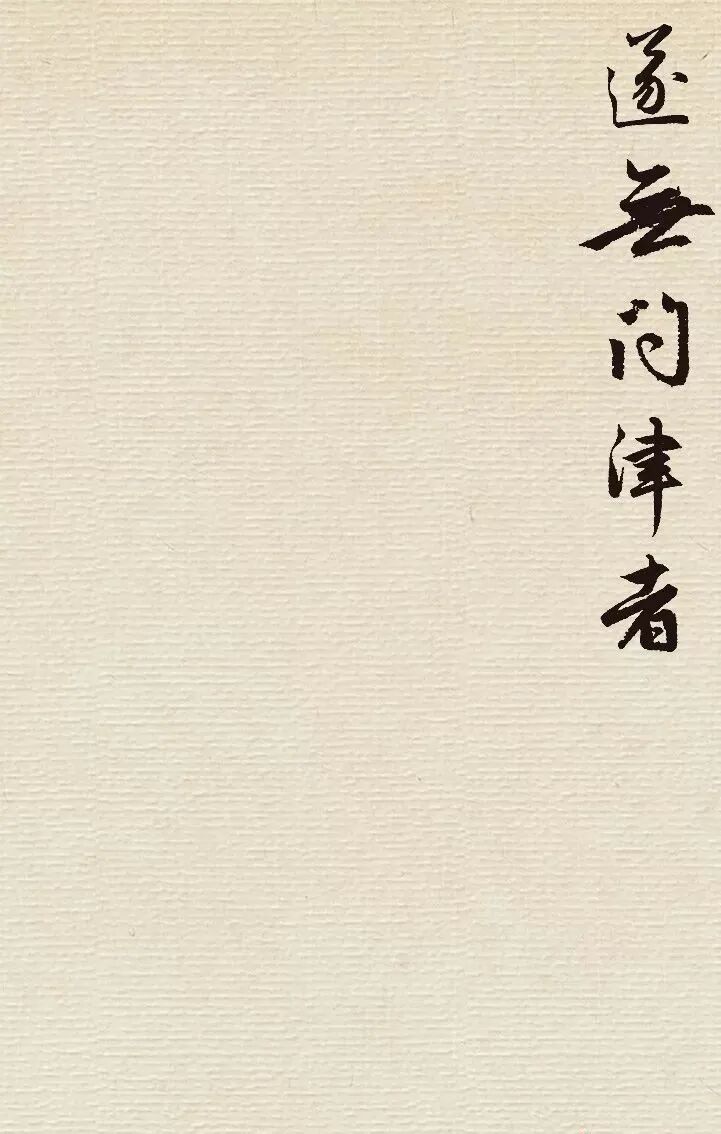 遂無问津者